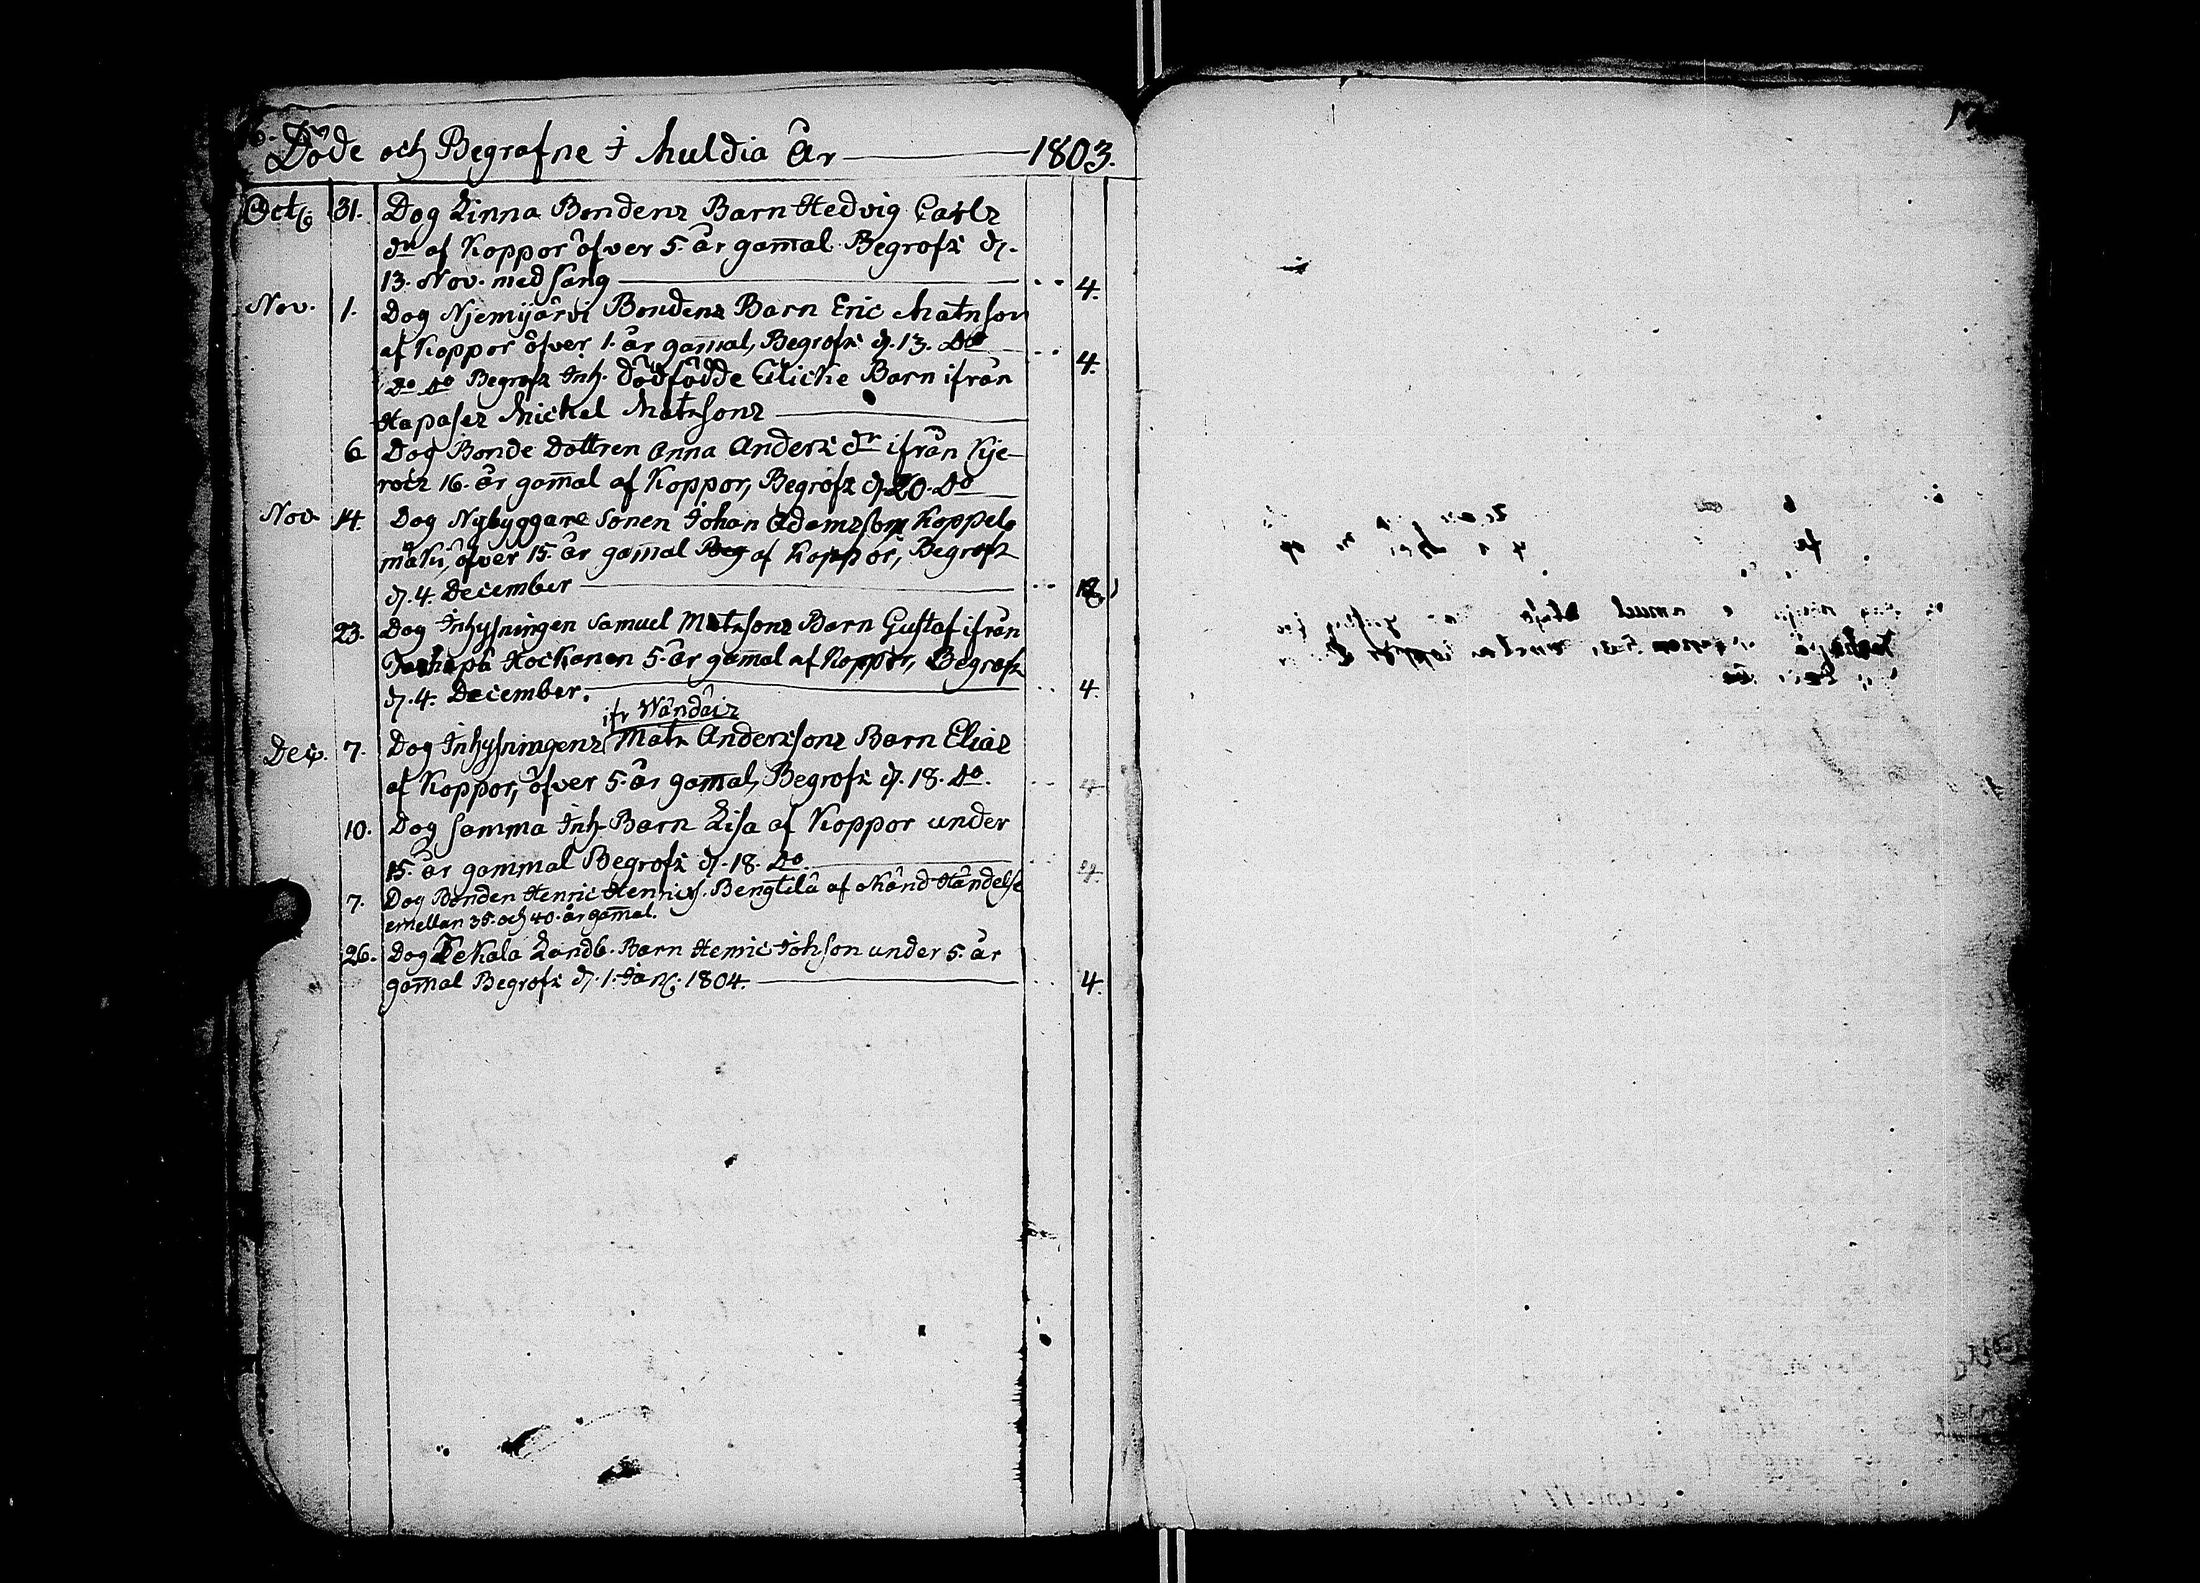 6.
Döde och Begrafne i Muldia År 1803.
Octb. 31. Dog Linna Bondens Barn Hedvig Carls
dr af Koppor öfver 5. år gam̄al Begrofs d.
13. Nov. med sång 4.
Nov. 1. Dog Njemijärvi Bondens Barn Eric Matsson
af Koppor öfver 1. år gam̄al, Begrofs d. 13. do 4.
do do Begrofs Inh. dödfödde Barn ifrån
Hapases Michel Matssons
6 Dog Bonde Dottren Anna Anders dr ifrån Kje-
rois 16. år gam̄al af Koppor, Begrofs d. 20. do
Nov 14. Dog Nybyggare Sonen Johan Adamsson Koppelo
mäki, öfver 15. år gam̄al Beg af Koppor, Begrofs
d. 4. December
23. Dog Inhysningen Samuel Matssons Barn Gustaf ifrån
på Hockanen 5. år gam̄al af Koppor, Begrofs
d. 4. December. 4.
ifr Wändäis
Dec. 7. Dog Inhysningens Mats Anderssons Barn Elias
af Koppor, öfver 5. år gam̄al, Begrofs d. 18. do. 4
10. Dog samma Inh. Barn Lisa af Koppor under
15. år gammal Begrofs d. 18. do. 4.
7. Dog Bonden Henric Henrics. Bengtilä af Hånd Händelse
emellan 35. och 40. år gam̄al.
26. Dog Tekala Landb. Barn Henric Johsson under 5. år
gam̄al Begrofs d. 1. Jan. 1804. 4.
17